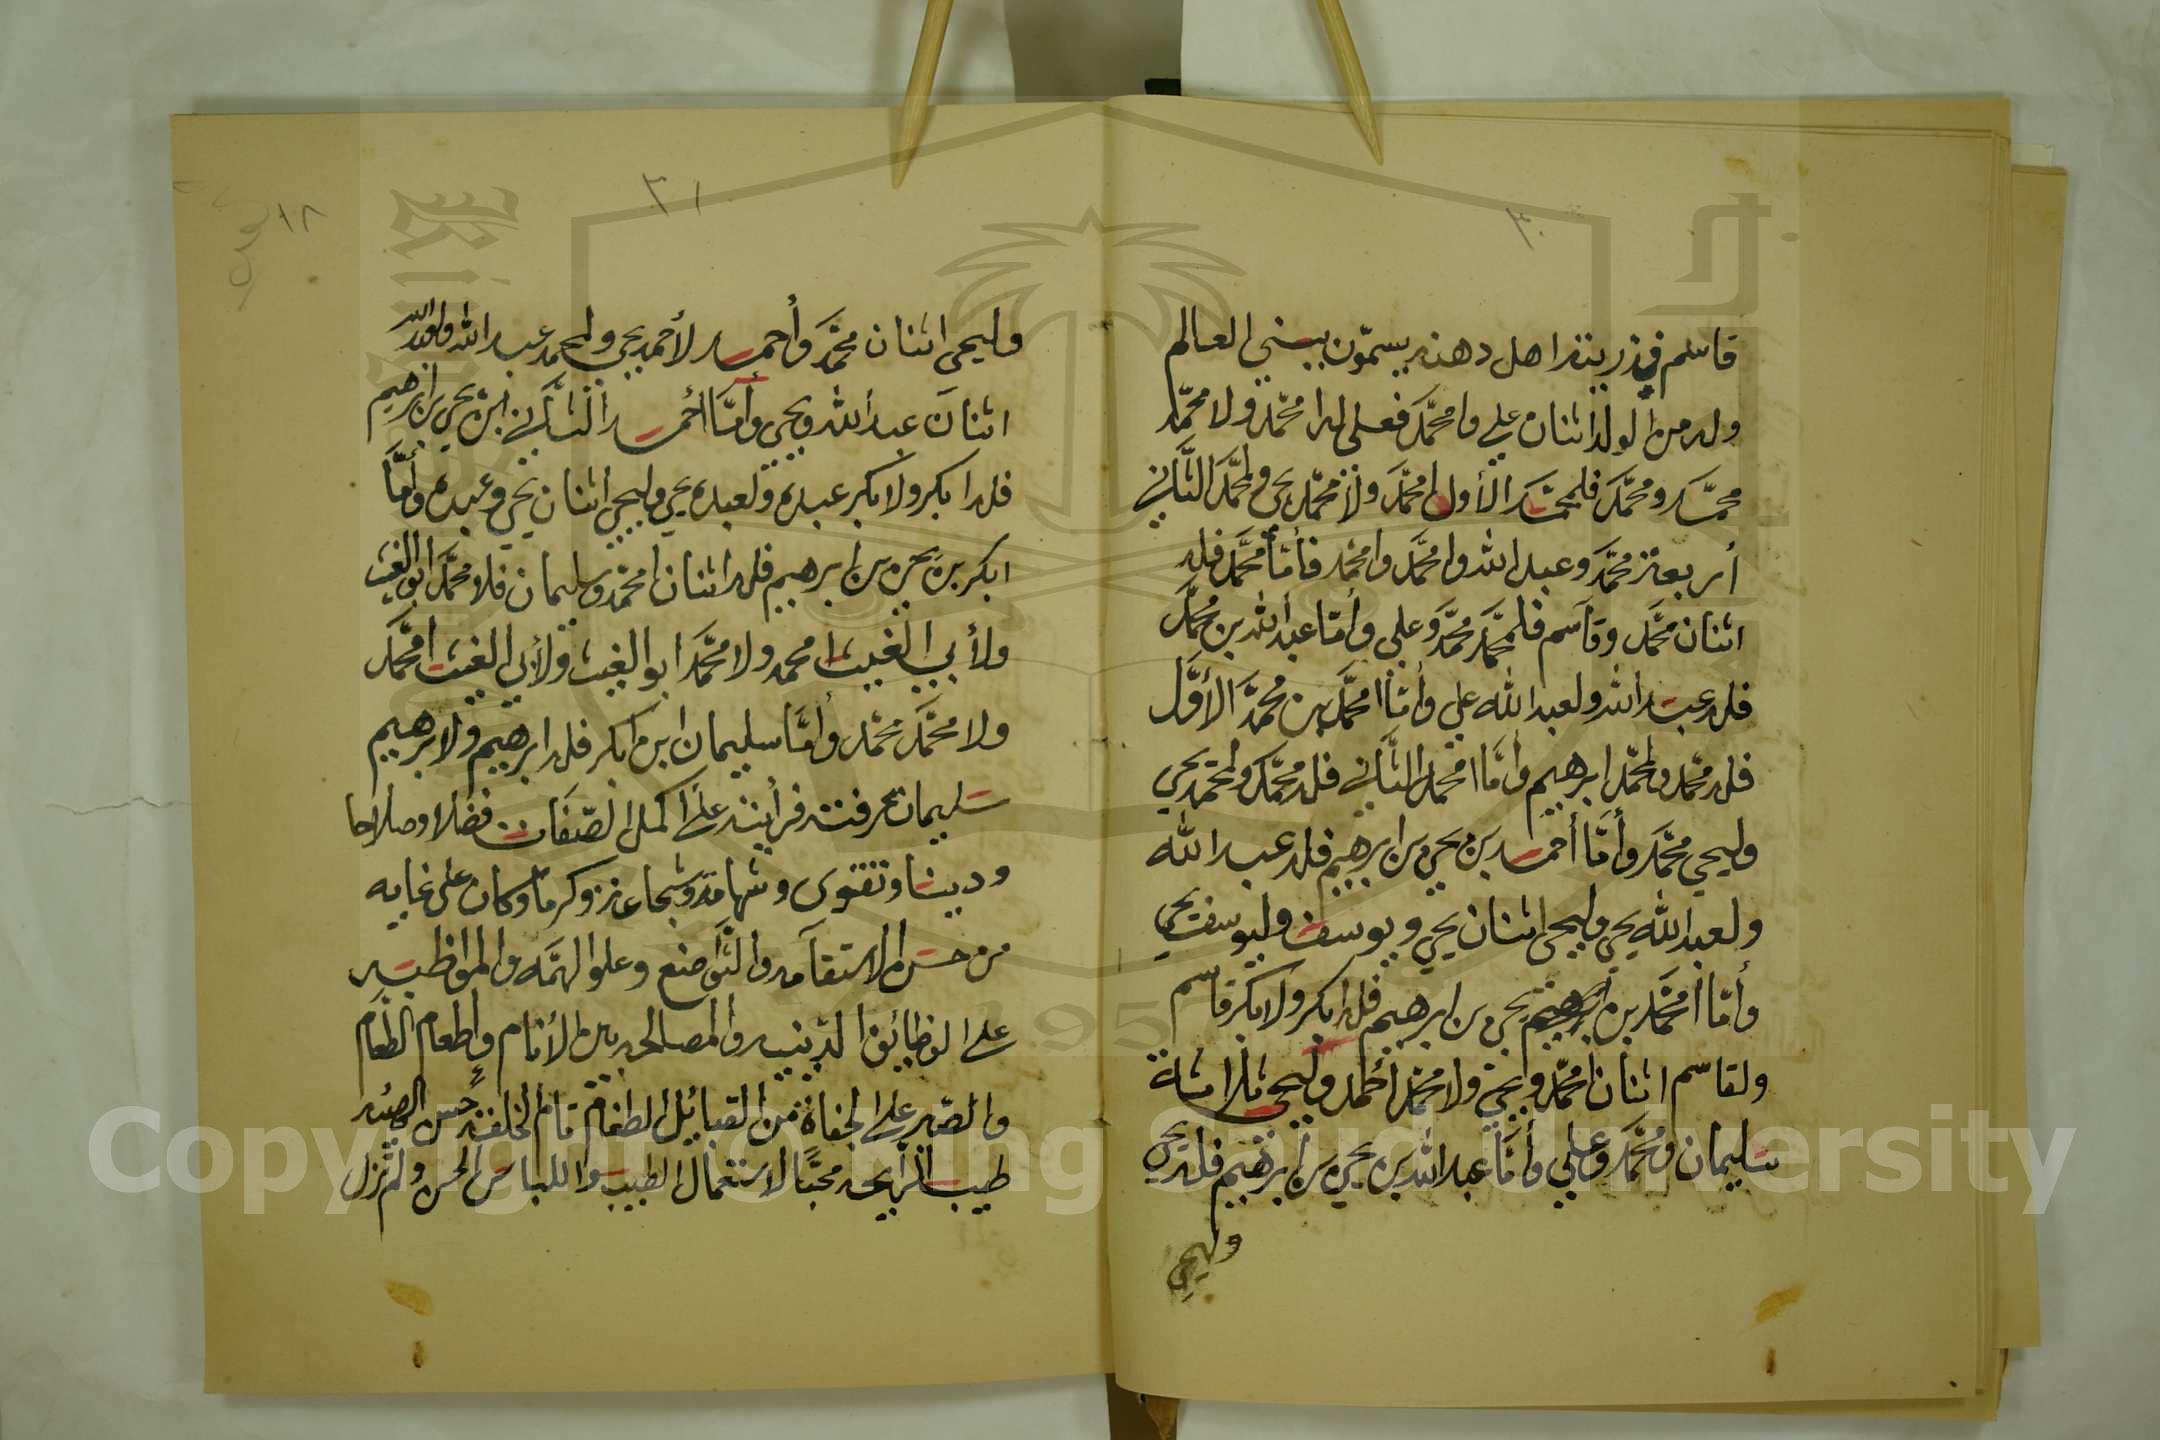 ٣٠
قاسم في ذريته اهل دهنه يسمّون ببني العالم
وله من الولد اثنان علي وامحمَّد فعلي له امحمّد ولامحمّد
محمّد ومحمَّد فلمحمَّد الأول امحمَّد ولامحمّد يحي ولمحمَّد الثَّاني
أربعة محمَّد وعبد الله وامحمَّد وامحمد فأمّا محمَّد فله
اثنان محمَّد وقاسم فلمحمَّد محمَّد وعلي وأمّا عبد الله بن محمَّد
فله عبد الله ولعبد الله علي وأمّا امحمَّد بن محمَّد الأوَّل
فله محمّد ولمحمّد ابرهيم وأمَّا امحمد الثَّاني فله محمَّد ولمحمد يحي
وليحي محمَّد وأمَّا أحمد بن يحي بن ابرهيم فله عبد الله
ولعبد الله يحي وليحي اثنان يحي ويوسف وليوسف يحي
وأمّا امحمَّد بن يحي بن ابرهيم فله ابكر ولابكر قاسم
ولقاسم اثنان امحمّد ويحي ولامحمّد أحمد وليحي ثلاثة
سليمان ومحمَّد وعلي وأمَّا عبد الله بن يحي بن ابرهيم فله يحي
وليحي
٣١
١٨
وليحي اثنان محمَّد وأحمد لأحمد يحي ولمحمد عبد الله ولعبد الله
اثنان عبد الله ويحي وأمّا أحمد الثَّاني ابن يحي بن ابرهيم
فله ابكر ولابكر عبده ولعبده يحي وليحي اثنان يحي وعبده وأمَّا
ابكر بن يحي بن ابرهيم فله اثنان امحمد وسليمان فلامحمَّد ابو الغيث
ولأبي الغيث امحمد ولامحمَّد ابو الغيث ولأبي الغيث امحمَّد
ولامحمَّد محمد وأمَّا سليمان ابن ابكر فله ابرهيم ولابرهيم
سليمان عرفته فرأيته على اكمل الصّفات فضلا وصلاحا
ودينا وتقوى وشهامة وشجاعة وكرما وكان على غايه
من حسن الاستقامه والتَّواضع وعلو الهمَّه والمواظبه
على الوظائف الدّينيه والمصالحه بين الأنام وإطعام الطَّعام
والصّبر على الجفاة من القبائل الطغام تام الخلقة حسن الصوره
طيب الرايحه محبًّا لاستعمال الطيب واللباس الحسن ولم تزل